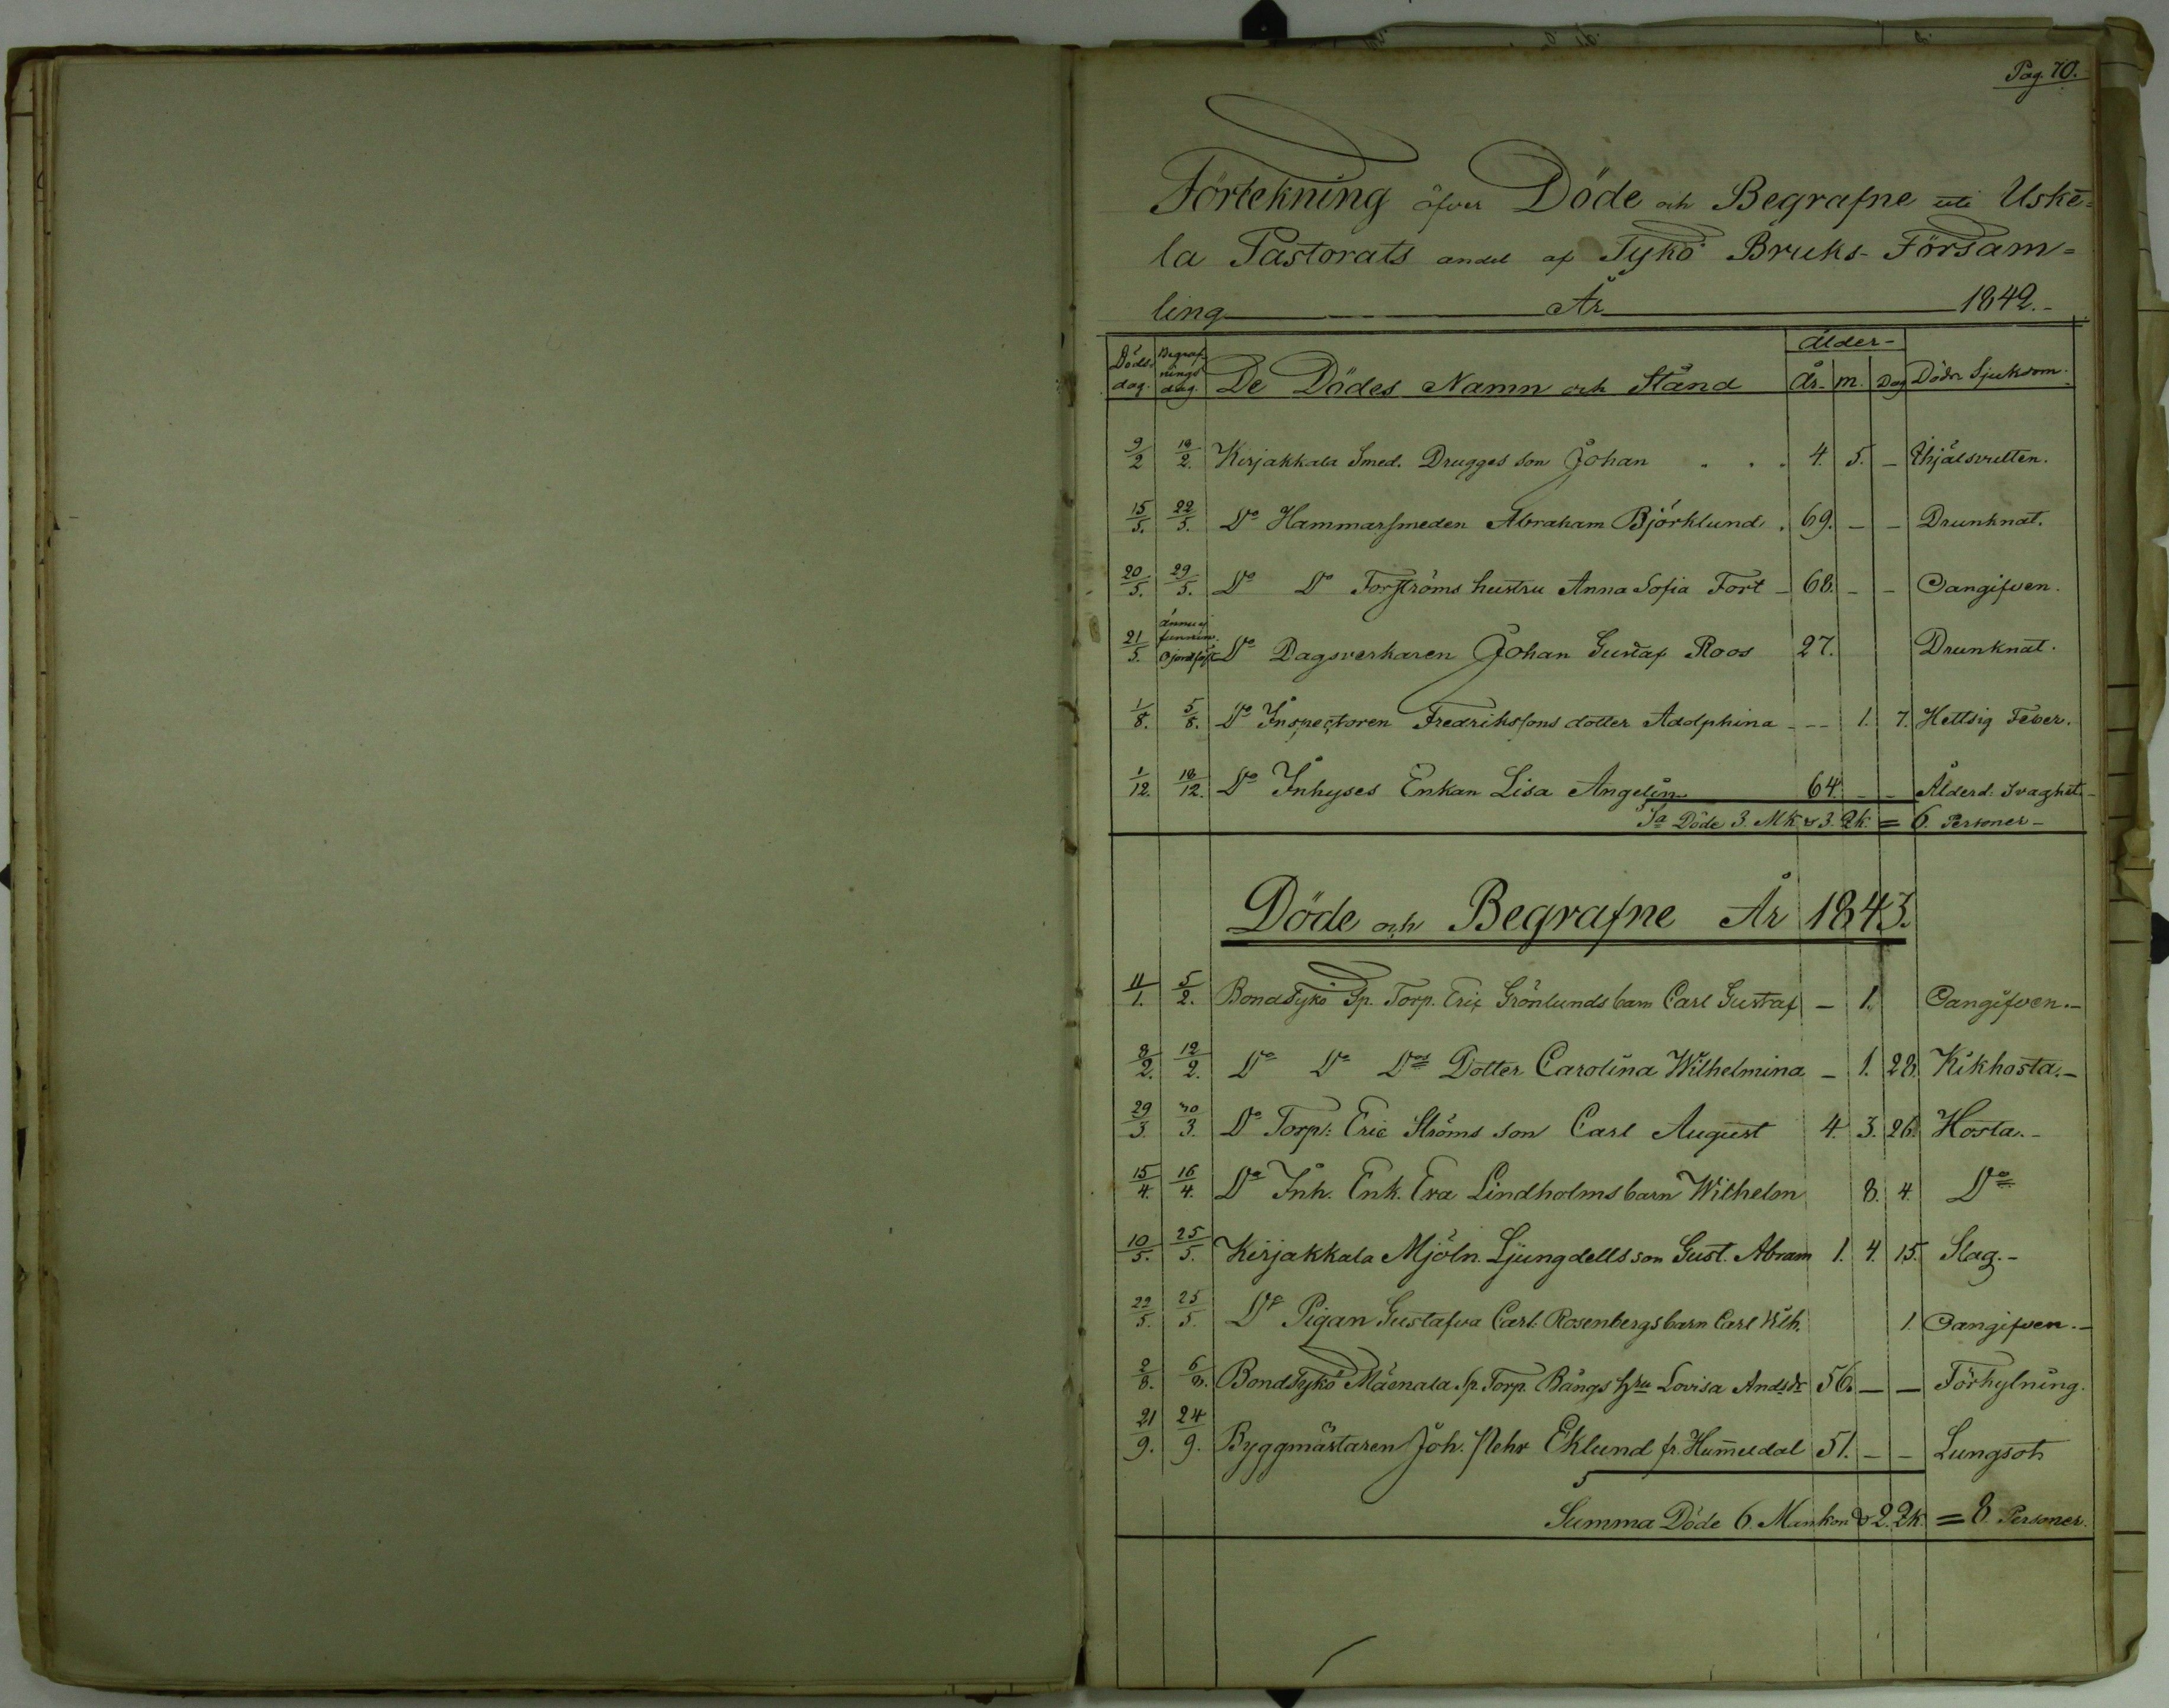 Pag. 70.
Förtekning öfver Döde och Begrafne uti Uske=
la Pastorats andel af Tykö Bruks-Försam=
ling År 1842.-
Döds. dag. Begraf- nings dag. De Dödes Namn och Stånd Ålder- År. m. Dag Döds Sjukdom.
9/2 18/2. Kirjakkala Smed. Drugges son Johan . . . 4. 5. - Ihjälsvulten.
15/5. 22/5. Do Hammarsmeden Abraham Björklund . 69. - - Drunknat.
20/5. 29/5. Do Do Forströms hustru Anna Sofia Fort - 68. - - Oangifven.
21/5. funnen. Ojordfäst Do Dagsverkaren Johan Gustaf Roos 27. Drunknat.
1/8. 5/8. Do Inspectoren Fredrikssons dotter Adolphina - -- 1. 7. Hettsig Feber.
1/12. 18/12. Do Inhyses Enkan Lisa Angelin 64. - - Ålderd: Svaghet.-
Sa Döde 3. Mk & 3. Qk. = 6. Personer-
Döde och Begrafne År 1843.
11/1. 5/2. BondTykö Sp. Torp. Eric Grönlunds barn Carl Gustaf - 1. Oangifven.-
8/2. 12/2. Do Do Dos Dotter Carolina Wilhelmina - 1. 28. Kikhosta.-
29/3. 30/3. Do Torp: Eric Ströms son Carl August 4. 3. 26. Hosta.-
15/4. 16/4. Do Inh. Enk. Eva Lindholms barn Wilhelm 8. 4. Do
10/5. 25/5. Kirjakkala Mjöln. Ljungdells son Gust. Abram 1. 4. 15. Slag.-
22/5. 25/5. Do Pigan Gustafva Carl: Rosenbergs barn Carl Wilh. 1. Oangifven.-
2/8. 6/8. BondTykö Mäenala Sp. Torp. Bångs Hru Lovisa Andsdr 56. - - Förkylning.
21/9. 24/9. Byggmästaren Joh. Pehr Eklund fr. Hummeldal 51. - - Lungsot
Summa Döde 6. Mankön & 2. Qk. = 8 Personer.